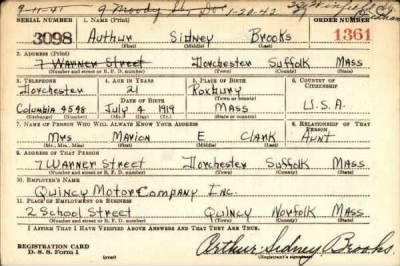 9-11-41 9 Moody St., Dor. 1-20-42
SERIAL NUMBER 1. NAME (Print) ORDER NUMBER
3098 Authur Sidney Brooks 1361
(First) (Middle) (Last)
2. ADDRESS (Print)
7 Warner Street Dorchester Suffolk Mass
(Number and street or R. F. D. number) (Town) (County) (State)
3. TELEPHONE 4. AGE IN YEARS 5. PLACE OF BIRTH 6. COUNTRY OF CITIZENSHIP
Dorchester 21 Roxbury
DATE OF BIRTH (Town or county)
Columbia 4598 July 4 1919 Mass U.S.A.
(Exchange) (Number) (Mo.) (Day) (Yr.) (State or country)
7. NAME OF PERSON WHO WILL ALWAYS KNOW YOUR ADDRESS 8. RELATIONSHIP OF THAT PERSON
Mrs Marion E Clark Aunt
(Mr., Mrs., Miss) (First) (Middle) (Last)
9. ADDRESS OF THAT PERSON
7 Warner Street Dorchester Suffolk Mass
(Number and street or R. F. D. number) (Town) (County) (State)
10. EMPLOYER'S NAME
Quincy Motor Company Inc.
11. PLACE OF EMPLOYMENT OR BUSINESS
2 School Street Quincy Norfolk Mass
(Number and street or R. F. D. number) (Town) (County) (State)
I AFFIRM THAT I HAVE VERIFIED ABOVE ANSWERS AND THAT THEY ARE TRUE.
REGISTRATION CARD
D. S. S. Form 1 (over) Arthur Sidney Brooks
(Registrant's signature)